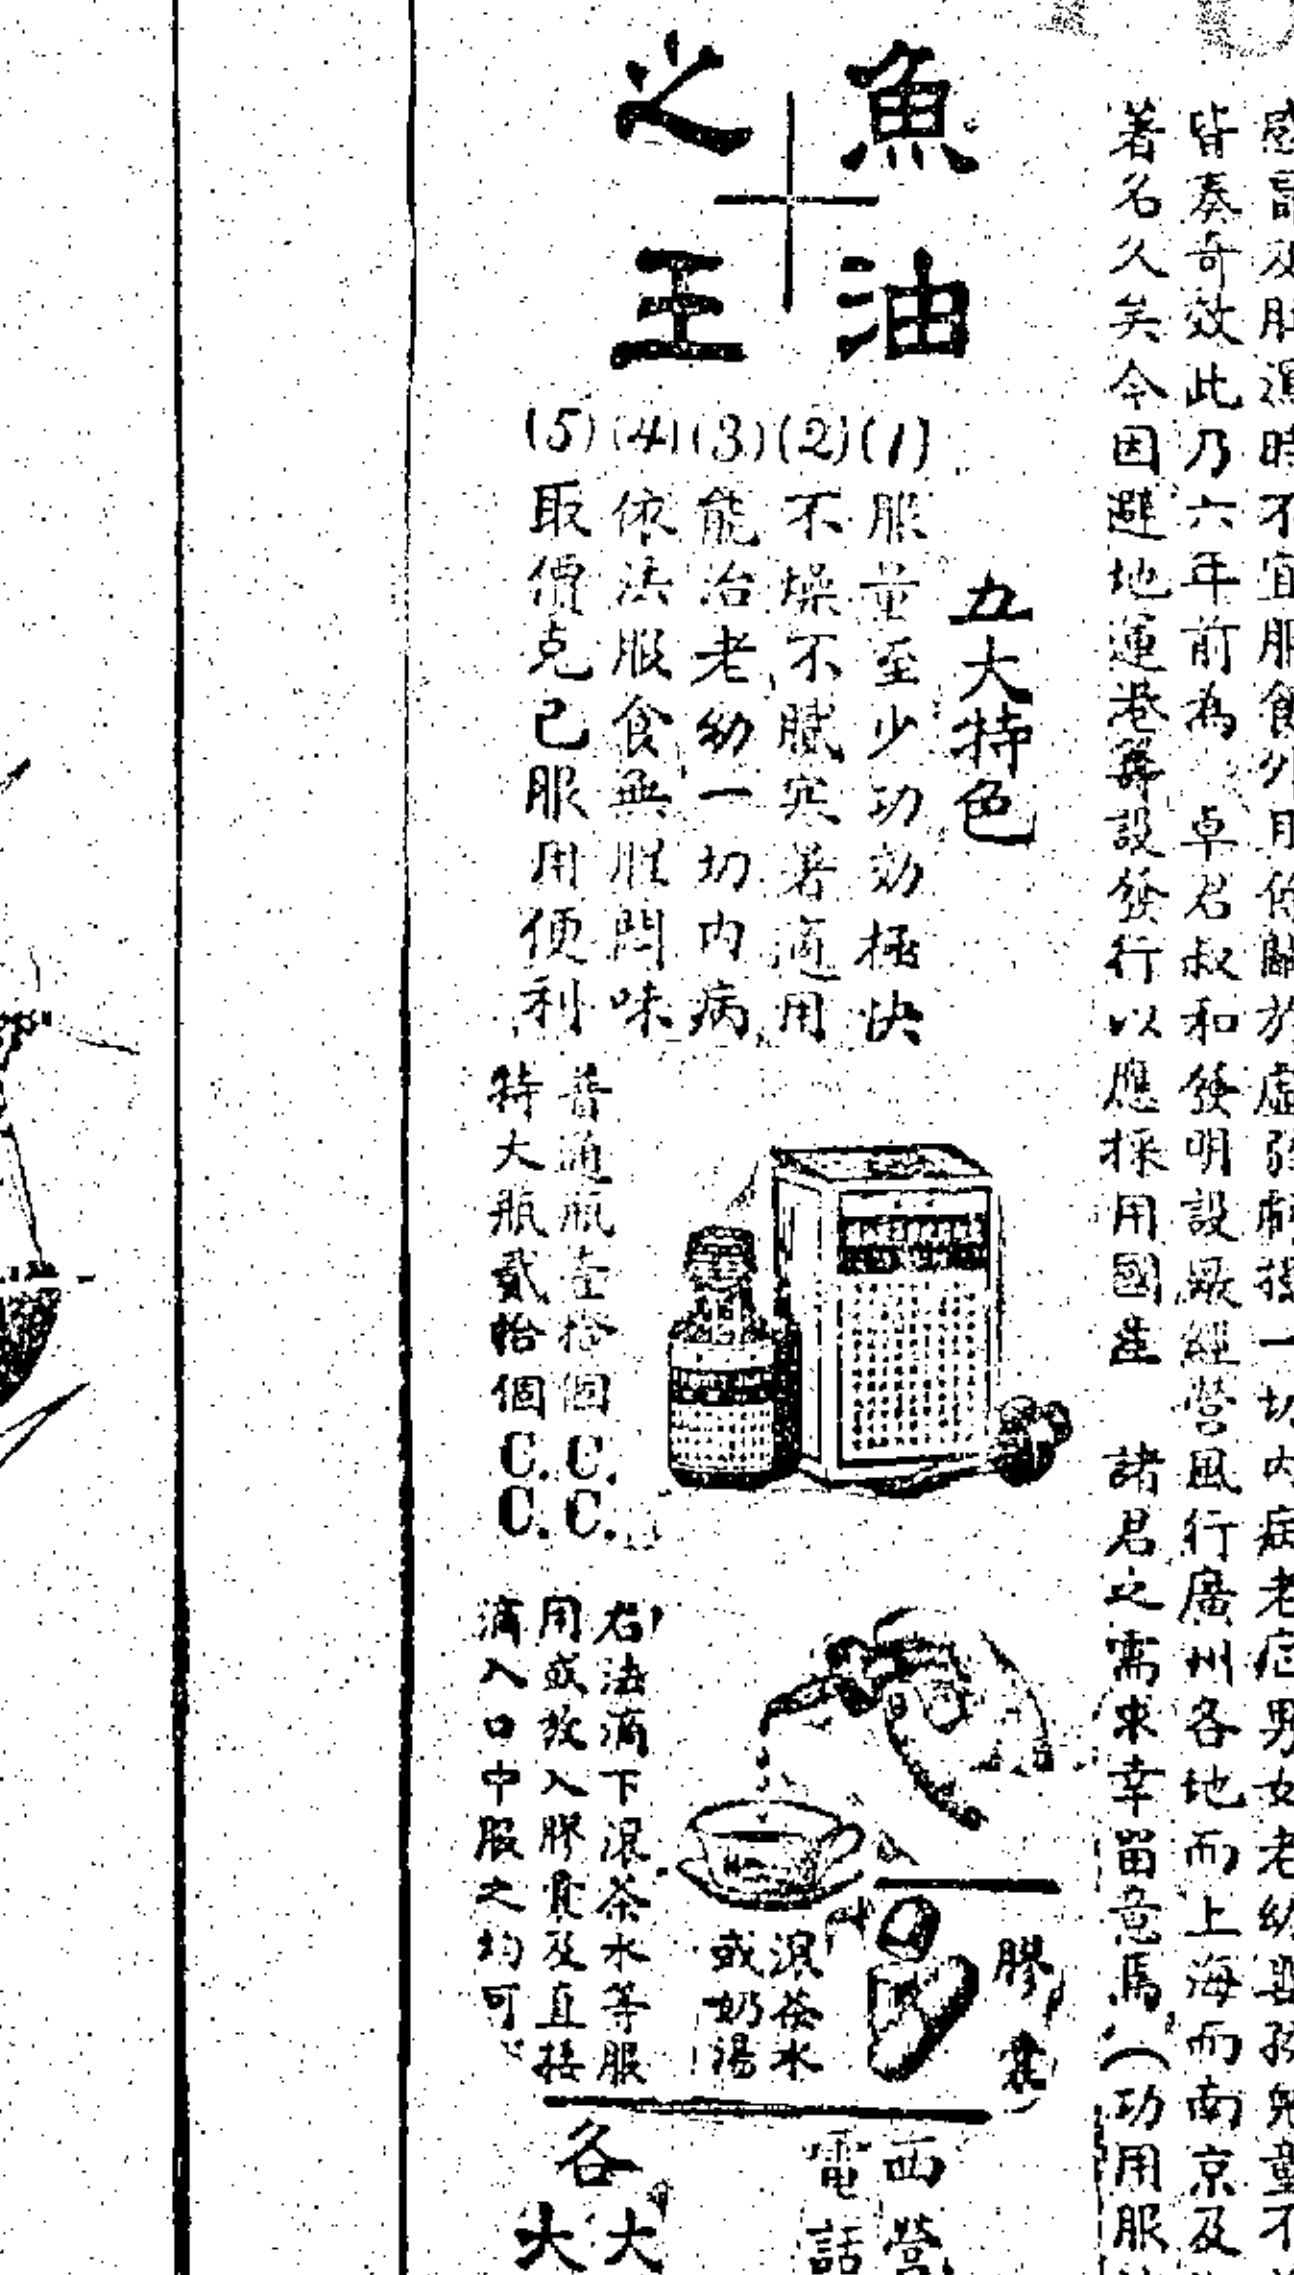 時不宜服食外用
虛弱
一切內病老
男女老幼
皆奏奇效此乃六年前為 卓君叔和發明設厰經營風行廣州各地而上海而南京及
著名久矣今因避地運港籌設發行以應採用國産 諸君之需求幸留意焉(功用服
魚油
之王
五大特色
(1)服量至少功効極快
(2)不燥不膩寒暑適用
(3)能治老幼一切內病
(4)依法服食無腥悶味
(5)取價克己服用便利
普通瓶壹拾個C.C.
特大瓶貳拾個C.C.
膠囊
滾茶水
或奶湯
右法滴下滾茶水等服
用或放入膠囊及直接
滴入口中服之均可
西營
電話
各
大
大